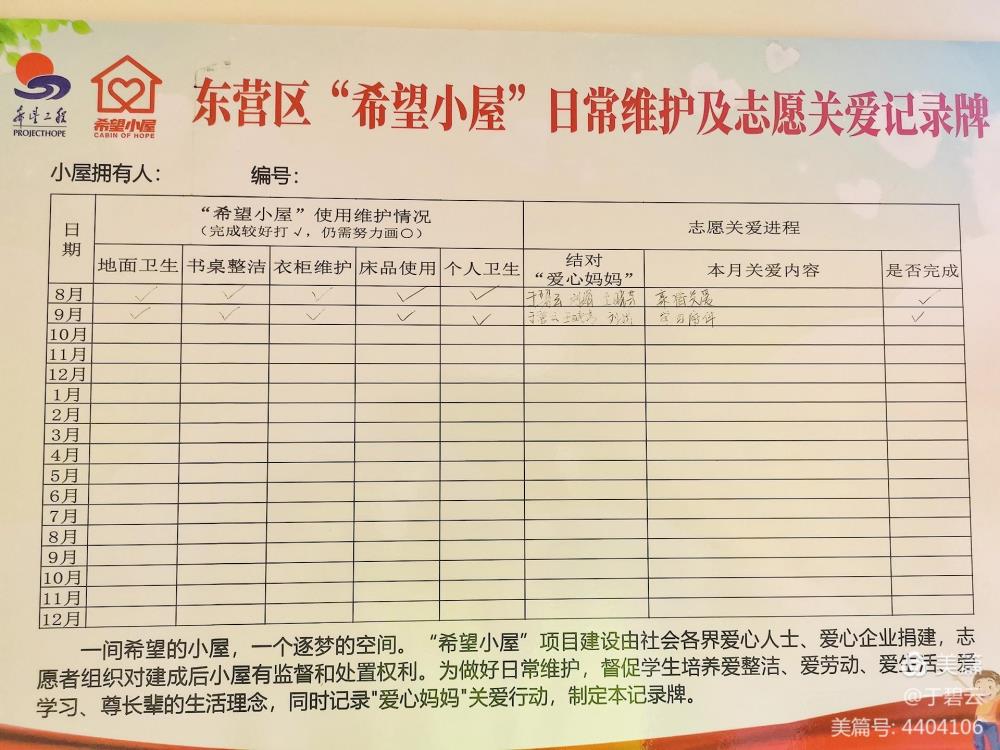 希望工程
PROJECTHOPE
希望小屋
CABIN OF HOPE
东营区“希望小屋”日常维护及志愿关爱记录牌
小屋拥有人： 编号：
日期 “希望小屋”使用维护情况 志愿关爱进程
（完成较好打√，仍需努力画○）
地面卫生 书桌整洁 衣柜维护 床品使用 个人卫生 结对“爱心妈妈” 本月关爱内容 是否完成
8月 ✓ ✓ ✓ ✓ ✓ 于碧云 ✓
9月 ✓ ✓ ✓ ✓ ✓ 于碧云 学习陪伴 ✓
10月
11月
12月
1月
2月
3月
4月
5月
6月
7月
8月
9月
10月
11月
12月
一间希望的小屋，一个逐梦的空间。“希望小屋”项目建设由社会各界爱心人士、爱心企业捐建，志
愿者组织对建成后小屋有监督和处置权利。为做好日常维护，督促学生培养爱整洁、爱劳动、爱生活、爱
学习、尊长辈的生活理念，同时记录"爱心妈妈"关爱行动，制定本记录牌。
美篇
@于碧云
美篇号: 4404106